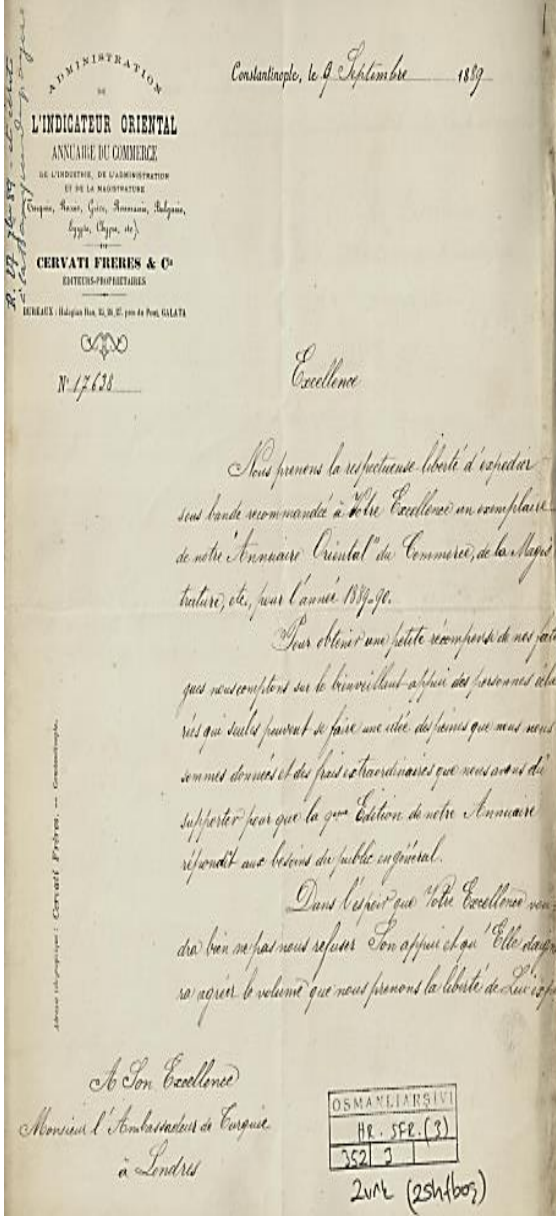 R. 27 7bre 89
ADMINISTRATION
DE
L'INDICATEUR ORIENTAL
ANNUAIRE DU COMMERCE
DE L'INDUSTRIE, DE L'ADMINISTRATION
ET DE LA MAGISTRATURE
(Turquie, Russie, Grèce, Roumanie, Bulgarie,
Egypte, Chypre, etc.)
CERVATI FRERES & Cie
ÉDITEURS-PROPRIÉTAIRES
BUREAUX : Han, 25, 26, 27, près du Pont, GALATA
N° 17638
Constantinople, le 9 Septembre 1889
Excellence
Nous prenons la respectueuse liberté d'expédier
sous bande recommandée à Votre Excellence un exemplaire
de notre "Annuaire Oriental" du Commerce, de la Magis
trature, etc., pour l'année 1889-90.
Pour obtenir une petite récompense de nos fati
gues nous comptons sur le bienveillant appui des personnes éclai
rées qui seules peuvent se faire une idée des peines que nous nous
sommes données et des frais extraordinaires que nous avons dû
supporter pour que la 9me Edition de notre Annuaire
répondit aux besoins du public en général.
Dans l'espoir que Votre Excellence vou-
dra bien ne pas nous refuser Son appui et qu'Elle daigne
ra agréer le volume que nous prenons la liberté de Lui expé
Adresse télégraphique : Cervati Frères, — Constantinople.
A Son Excellence
Monsieur l'Ambassadeur de Turquie
à Londres
OSMANLI ARŞİVİ
HR. SFR. (3)
352 3
2vrk (2shf boş)